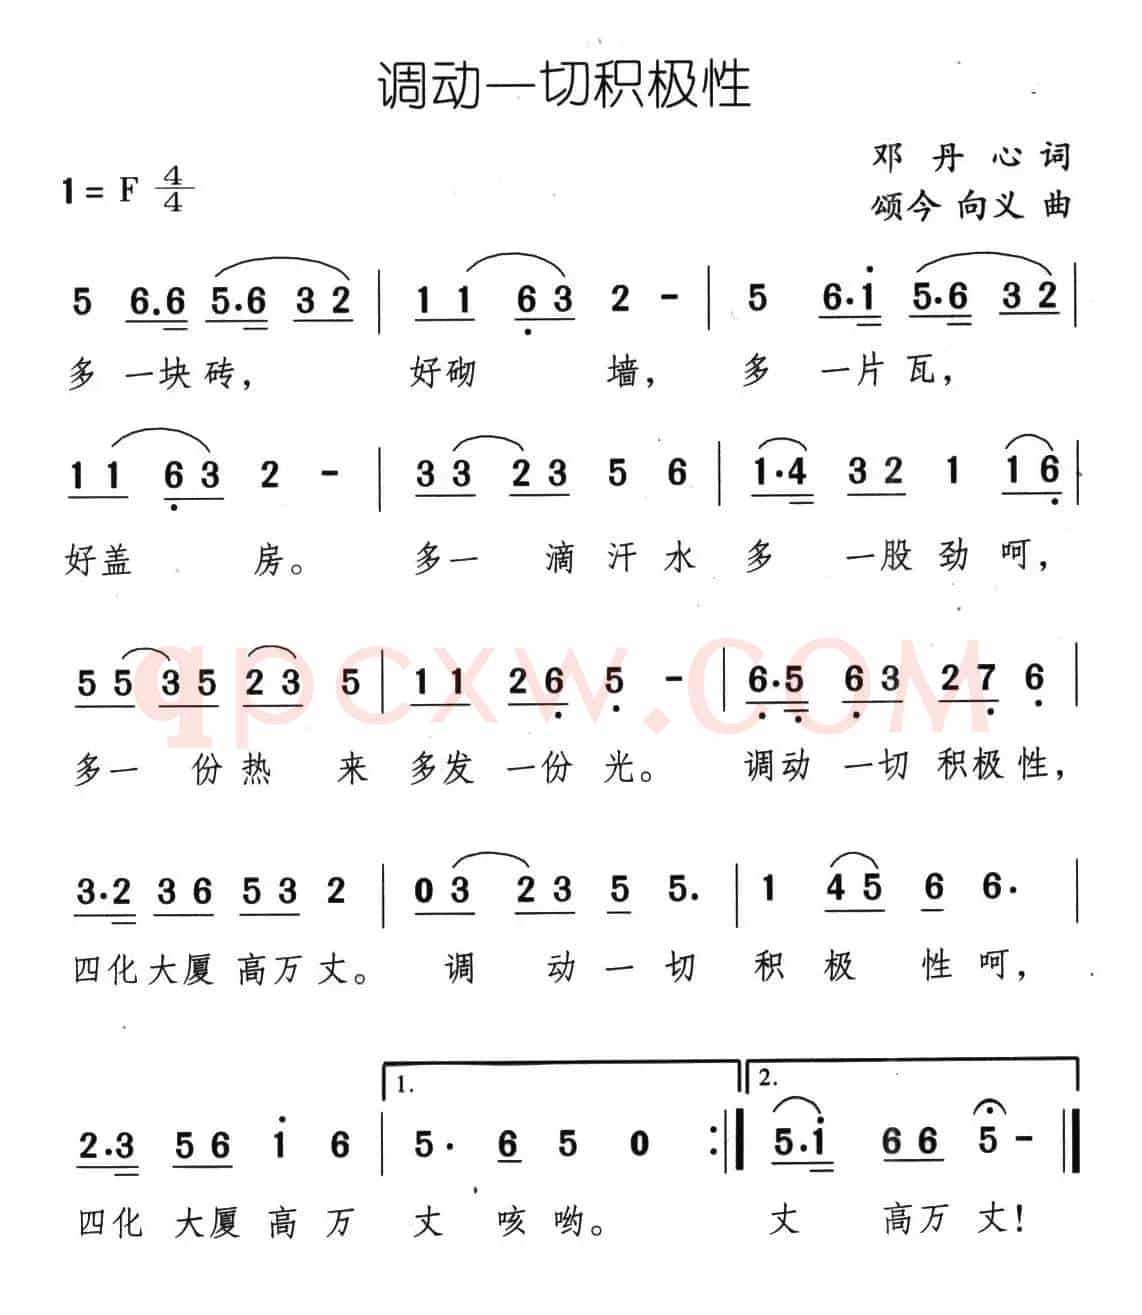 调动一切积极性
邓丹心词
1=F 4/4
颂今 向义 曲
5 6.6 5.6 3 2 | 1 1 6̣ 3 2 - | 5 6.i̇ 5.6 3 2 |
多 一块砖， 好砌 墙， 多 一片瓦，
1 1 6̣ 3 2 - | 3 3 2 3 5 6 | 1.4 3 2 1 1 6̣ |
好盖 房。 多一 滴汗水 多 一股劲呵，
5 5 3 5 2 3 5 | 1 1 2 6̣ 5̣ - | 6̣.5̣ 6̣ 3 2 7̣ 6̣ |
多一 份热 来 多发 一份光。 调动 一切积极性，
qpcxw.COM
3.2 3 6 5 3 2 | 0 3 2 3 5 5. | 1 4 5 6 6. |
四化大厦高万丈。 调 动一切 积极 性呵，
1. 2.
2.3 5 6 i̇ 6 | 5. 6 5 0 :‖ 5.i̇ 6 6 5 - ‖
四化 大厦高万 丈 咳哟。 丈 高万丈！